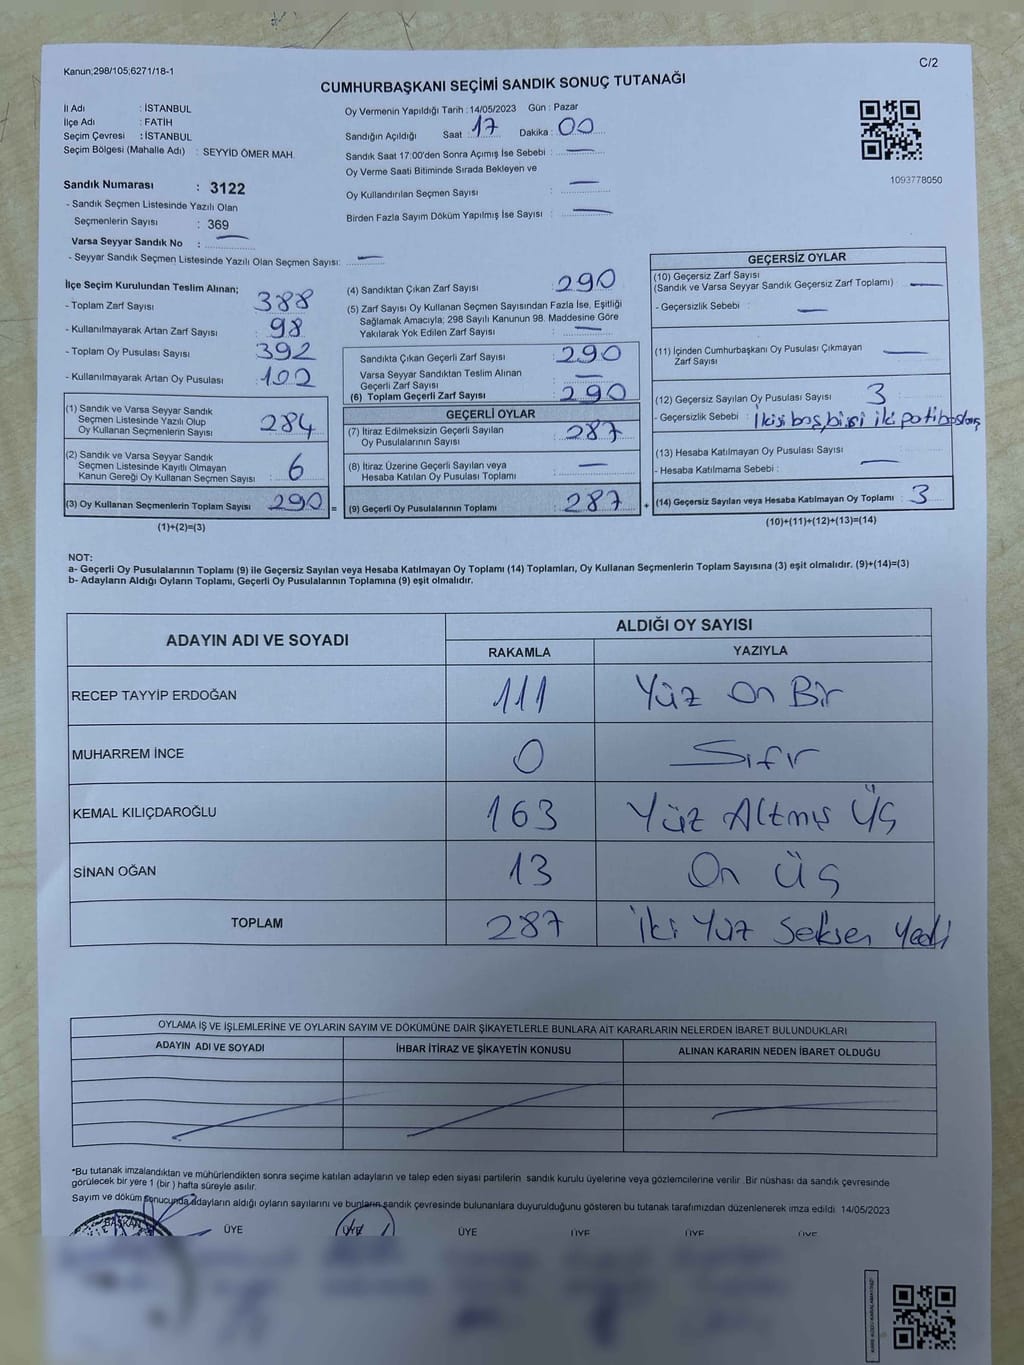 Kanun;298/105;6271/18-1
C/2
CUMHURBAŞKANI SEÇİMİ SANDIK SONUÇ TUTANAĞI
İl Adı : İSTANBUL
İlçe Adı : FATİH
Seçim Çevresi : İSTANBUL
Seçim Bölgesi (Mahalle Adı) : SEYYİD ÖMER MAH.
Sandık Numarası : 3122
- Sandık Seçmen Listesinde Yazılı Olan
Seçmenlerin Sayısı : 369
Varsa Seyyar Sandık No : —
- Seyyar Sandık Seçmen Listesinde Yazılı Olan Seçmen Sayısı: —
Oy Vermenin Yapıldığı Tarih : 14/05/2023 Gün : Pazar
Sandığın Açıldığı Saat : 17 Dakika : 00
Sandık Saat 17:00'den Sonra Açımış İse Sebebi : —
Oy Verme Saati Bitiminde Sırada Bekleyen ve
Oy Kullandırılan Seçmen Sayısı : —
Birden Fazla Sayım Döküm Yapılmış İse Sayısı : —
1093778050
İlçe Seçim Kurulundan Teslim Alınan;
- Toplam Zarf Sayısı : 388
- Kullanılmayarak Artan Zarf Sayısı : 98
- Toplam Oy Pusulası Sayısı : 392
- Kullanılmayarak Artan Oy Pusulası : 102
(1) Sandık ve Varsa Seyyar Sandık
Seçmen Listesinde Yazılı Olup
Oy Kullanan Seçmenlerin Sayısı : 284
(2) Sandık ve Varsa Seyyar Sandık
Seçmen Listesinde Kayıtlı Olmayan
Kanun Gereği Oy Kullanan Seçmen Sayısı : 6
(3) Oy Kullanan Seçmenlerin Toplam Sayısı : 290 =
(1)+(2)=(3)
(4) Sandıktan Çıkan Zarf Sayısı : 290
(5) Zarf Sayısı Oy Kullanan Seçmen Sayısından Fazla İse, Eşitliği
Sağlamak Amacıyla, 298 Sayılı Kanunun 98. Maddesine Göre
Yakılarak Yok Edilen Zarf Sayısı : —
Sandıkta Çıkan Geçerli Zarf Sayısı : 290
Varsa Seyyar Sandıktan Teslim Alınan
Geçerli Zarf Sayısı : —
(6) Toplam Geçerli Zarf Sayısı : 290
GEÇERLİ OYLAR
(7) İtiraz Edilmeksizin Geçerli Sayılan
Oy Pusulalarının Sayısı : 287
(8) İtiraz Üzerine Geçerli Sayılan veya
Hesaba Katılan Oy Pusulası Toplamı : —
(9) Geçerli Oy Pusulalarının Toplamı : 287 +
GEÇERSİZ OYLAR
(10) Geçersiz Zarf Sayısı
(Sandık ve Varsa Seyyar Sandık Geçersiz Zarf Toplamı) : —
- Geçersizlik Sebebi : —
(11) İçinden Cumhurbaşkanı Oy Pusulası Çıkmayan
Zarf Sayısı : —
(12) Geçersiz Sayılan Oy Pusulası Sayısı : 3
- Geçersizlik Sebebi : İkisi boş, birisi iki
(13) Hesaba Katılmayan Oy Pusulası Sayısı :
- Hesaba Katılmama Sebebi : —
(14) Geçersiz Sayılan veya Hesaba Katılmayan Oy Toplamı : 3
(10)+(11)+(12)+(13)=(14)
NOT:
a- Geçerli Oy Pusulalarının Toplamı (9) ile Geçersiz Sayılan veya Hesaba Katılmayan Oy Toplamı (14) Toplamları, Oy Kullanan Seçmenlerin Toplam Sayısına (3) eşit olmalıdır. (9)+(14)=(3)
b- Adayların Aldığı Oyların Toplamı, Geçerli Oy Pusulalarının Toplamına (9) eşit olmalıdır.
ADAYIN ADI VE SOYADI
ALDIĞI OY SAYISI
RAKAMLA YAZIYLA
RECEP TAYYİP ERDOĞAN 111 Yüz On Bir
MUHARREM İNCE 0 Sıfır
KEMAL KILIÇDAROĞLU 163 Yüz Altmış Üç
SİNAN OĞAN 13 On Üç
TOPLAM 287 İki Yüz Seksen Yedi
OYLAMA İŞ VE İŞLEMLERİNE VE OYLARIN SAYIM VE DÖKÜMÜNE DAİR ŞİKAYETLERLE BUNLARA AİT KARARLARIN NELERDEN İBARET BULUNDUKLARI
ADAYIN ADI VE SOYADI İHBAR İTİRAZ VE ŞİKAYETİN KONUSU ALINAN KARARIN NEDEN İBARET OLDUĞU
*Bu tutanak imzalandıktan ve mühürlendikten sonra seçime katılan adayların ve talep eden siyasi partilerin sandık kurulu üyelerine veya gözlemcilerine verilir. Bir nüshası da sandık çevresinde
görülecek bir yere 1 (bir ) hafta süreyle asılır.
Sayım ve döküm sonucunda adayların aldığı oyların sayılarını ve bunların sandık çevresinde bulunanlara duyurulduğunu gösteren bu tutanak tarafımızdan düzenlenerek imza edildi. 14/05/2023
BAŞKAN ÜYE ÜYE ÜYE ÜYE ÜYE ÜYE